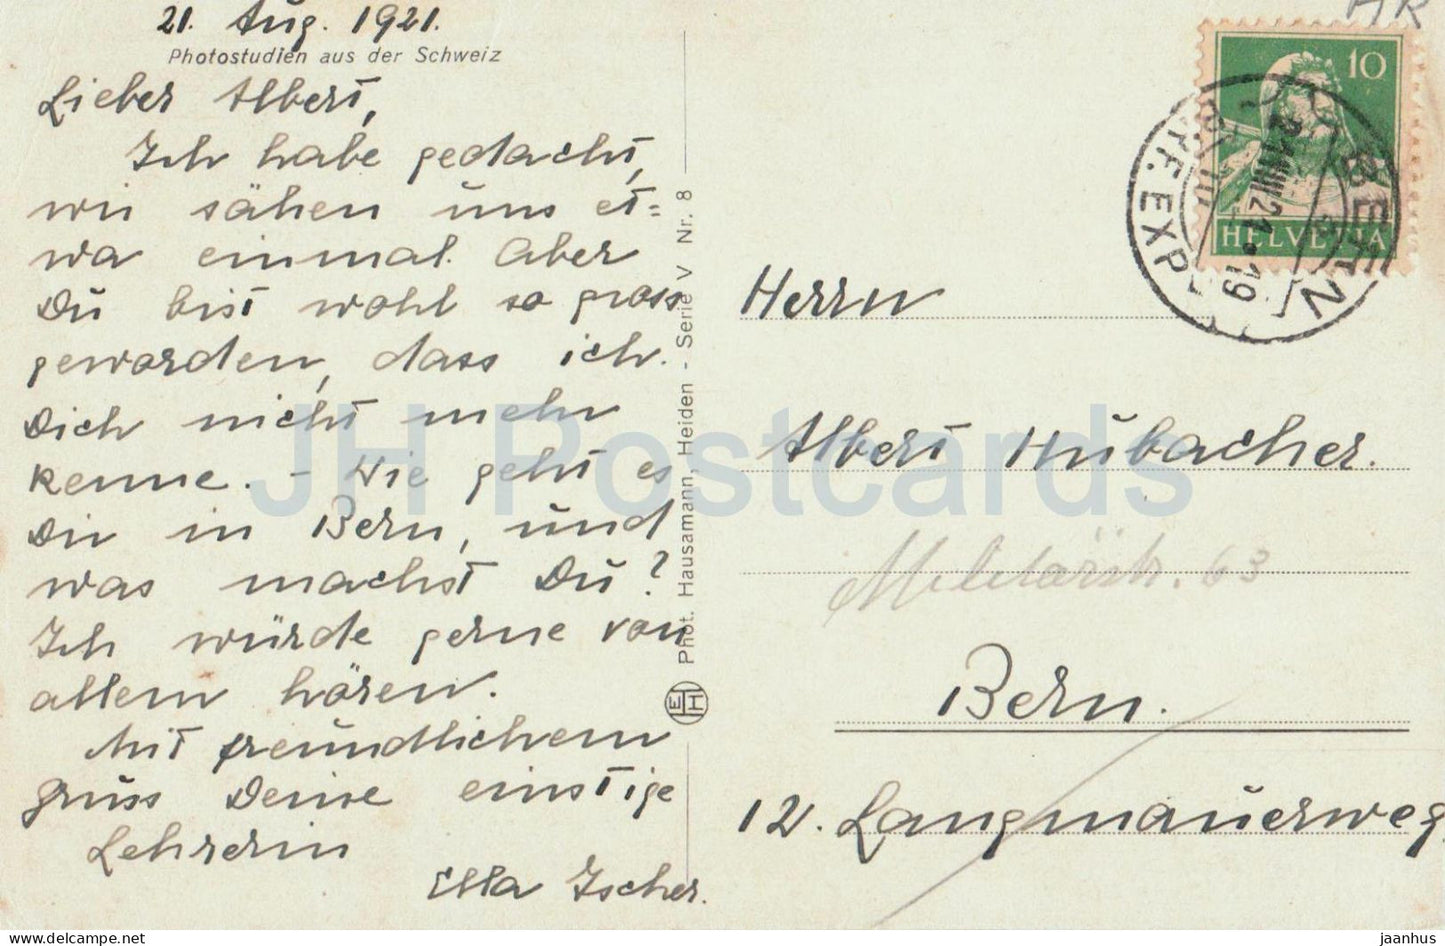 21. Aug. 1921.
Photostudien aus der Schweiz
Lieber Albert,
Ich habe gedacht,
wir sähen uns et=
wa einmal. Aber
Du bist wohl so gross
geworden, dass ich
Dich nicht mehr
kenne. - Wie geht es
Dir in Bern, und
was machst Du?
Ich würde gerne von
allem hören.
Mit freundlichem
Gruss Deine einstige
Lehrerin
Ella Ischer.
Phot. Hausamann, Heiden - Serie V Nr. 8
EH
HR
10
HELVETIA
BERN
BRF. EXP.
21.VIII.21.-19
Herrn
Albert Hubacher.
Militärstr. 63
Bern.
12. Langmauerweg.
JH Postcards
jaanhus — https://www.ebay.com/str/jaanhus